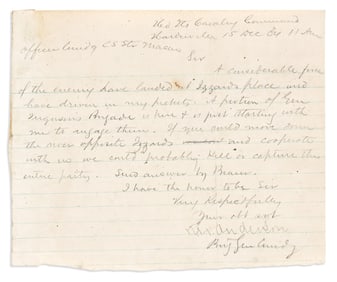 Hd Qts Cavalry Command
15 Dec 64 11 Am
officer Comdg C S Str Macon
Sir
A considerable force
of the enemy have landed at Izzards place and
have driven in my pickets. A portion of Gen
Fergusons Brigade is here & is just starting with
me to engage them. If you could move down
the river opposite Izzards and cooperate
with us we could probably kill or capture the
entire party. Send answer by Bearer.
I have the honor to be Sir
Very Respectfully
Your obt svt
R H Anderson
Brig Gen Comdg